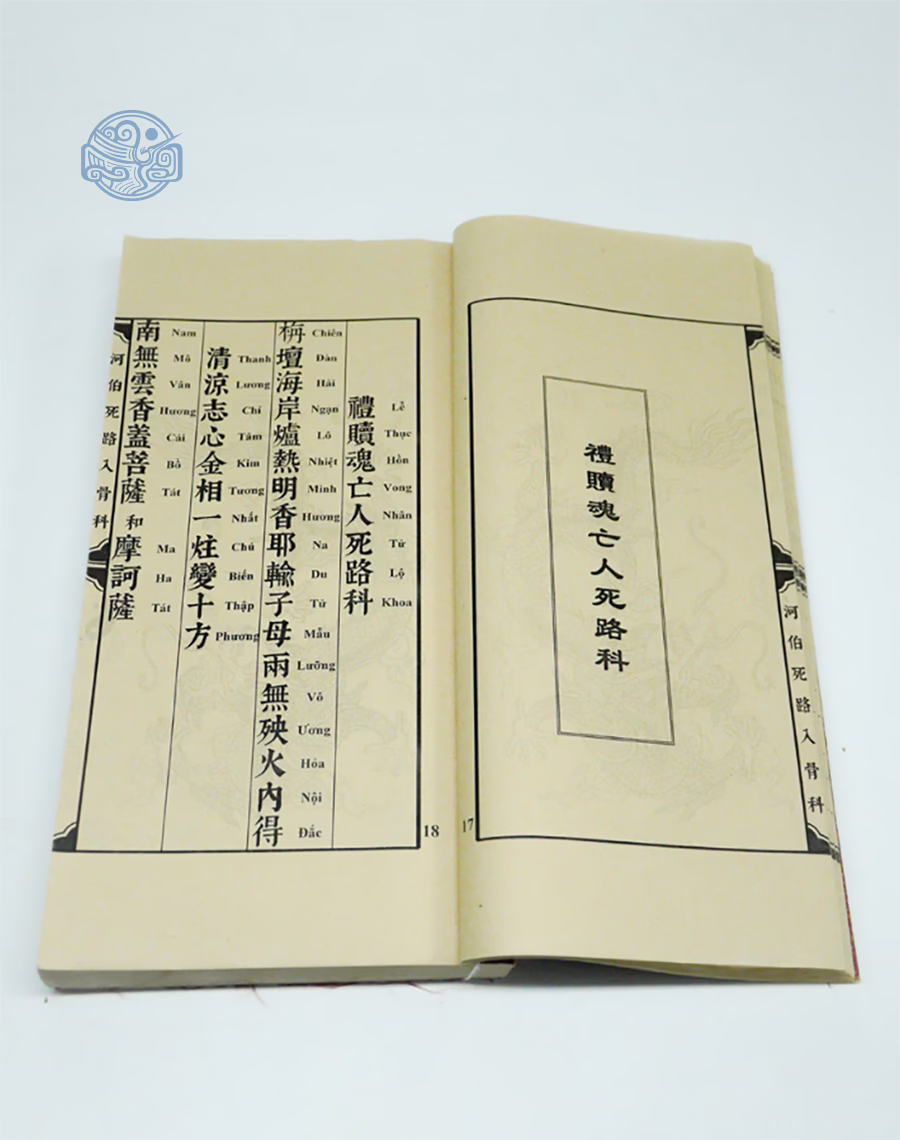 河伯死路入骨科
禮贖魂亡人死路科
17
禮贖魂亡人死路科
Lễ Thục Hồn Vong Nhân Tử Lộ Khoa
栴壇海岸爐熱明香耶輸子母兩無殃火內得
Chiên Đàn Hải Ngạn Lô Nhiệt Minh Hương Na Du Tử Mẫu Lưỡng Vô Ương Hỏa Nội Đắc
清涼志心金相一炷變十方
Thanh Lương Chí Tâm Kim Tương Nhất Chú Biến Thập Phương
南無雲香蓋菩薩和摩訶薩
Nam Mô Vân Hương Cái Bồ Tát Ma Ha Tát
河伯死路入骨科
18